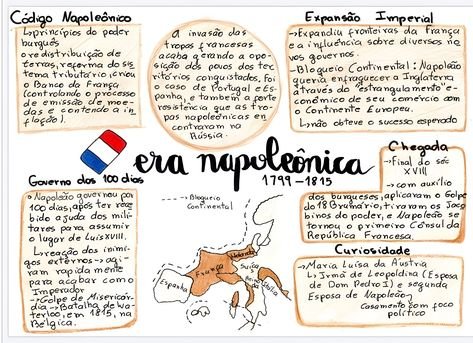 Código Napoleônico
↳princípios do poder
burguês
○redistribuição de
terras, reforma do sis
tema tributário, criou
o Banco da França
(controlando o processo
de emissão de moe-
das e contendo a in
flação).
A invasão das
tropas francesas
acaba gerando a opo-
sição dos povos dos ter-
ritórios conquistados. Foi
o caso de Portugal e Es-
panha, e também a forte
resistência que as tro-
pas napoleônicas en-
contraram na
Rússia.
Expansão Imperial
→Expandiu fronteiras da França
e a influência sobre diversos no
vos governos.
-Bloqueio Continental: Napoleão
queria enfraquecer a Inglaterra
através do "estrangulamento" e-
conômico de seu comércio com
o Continente Europeu.
↳não obteve o sucesso esperado
era napoleônica
1799-1815
Governo dos 100 dias
○Napoleão governou por
100 dias, após ter rece
bido ajuda dos mili-
tares para assumir
o lugar de Luis XVIII.
↳reação dos inimi-
gos externos→agi-
ram rapidamente
para acabar com o
Imperador
→Golpe de Misericór-
dia→Batalha de Wa-
terloo, em 1815, na
Bélgica.
→Bloqueio
Continental
Holanda
França
Suíça
Espanha
Itália
Chegada
→Final do séc
XVIII
→com auxílio
dos burgueses, aplicaram o Golpe
do 18 Brumário, tiraram os Jaco
binos do poder, e Napoleão se
tornou o primeiro Cônsul da
República Francesa.
Curiosidade
→Maria Luísa da Áustria
↳Irmã de Leopoldina (Esposa
de Dom Pedro I) e segunda
Esposa de Napoleão
Casamento com foco
político